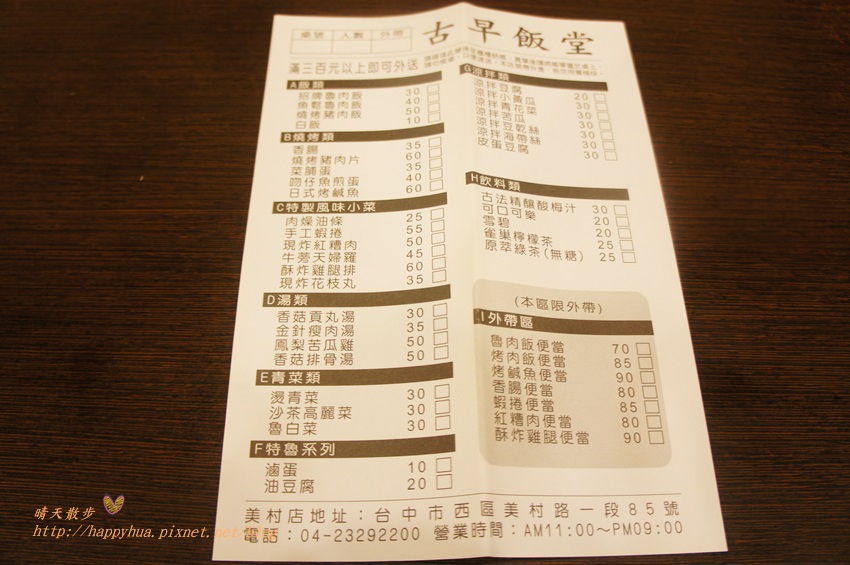 古早飯堂
桌號 人數 外帶
滿三百元以上即可外送
A飯類
招牌魯肉飯 30
魚鬆魯肉飯 40
燒烤豬肉飯 50
白飯 10
B燒烤類
香腸 35
燒烤豬肉片 60
菜脯蛋 35
吻仔魚煎蛋 40
日式烤鹹魚 60
C特製風味小菜
肉燥油條 25
手工蝦捲 55
現炸紅糟肉 50
牛蒡天婦羅 45
酥炸雞腿排 60
現炸花枝丸 35
D湯類
香菇貢丸湯 30
金針瘦肉湯 35
鳳梨苦瓜雞 50
香菇排骨湯 50
E青菜類
燙青菜 30
沙茶高麗菜 30
魯白菜 30
F特魯系列
滷蛋 10
油豆腐 20
G涼拌類
涼拌豆腐 20
涼拌小黃瓜 30
涼拌青花菜 30
涼拌苦瓜 30
涼拌豆乾絲 30
涼拌海帶絲 30
皮蛋豆腐 30
H飲料類
古法精釀酸梅汁 30
可口可樂 20
雪碧 20
雀巢檸檬茶 25
原萃綠茶(無糖) 25
(本區限外帶)
I外帶區
魯肉飯便當 70
烤肉飯便當 85
烤鹹魚便當 90
香腸便當 80
蝦捲便當 85
紅糟肉便當 80
酥炸雞腿便當 90
美村店地址：台中市西區美村路一段85號
電話：04-23292200 營業時間：AM11:00～PM09:00
晴天散步
http://happyhua.pixnet.net